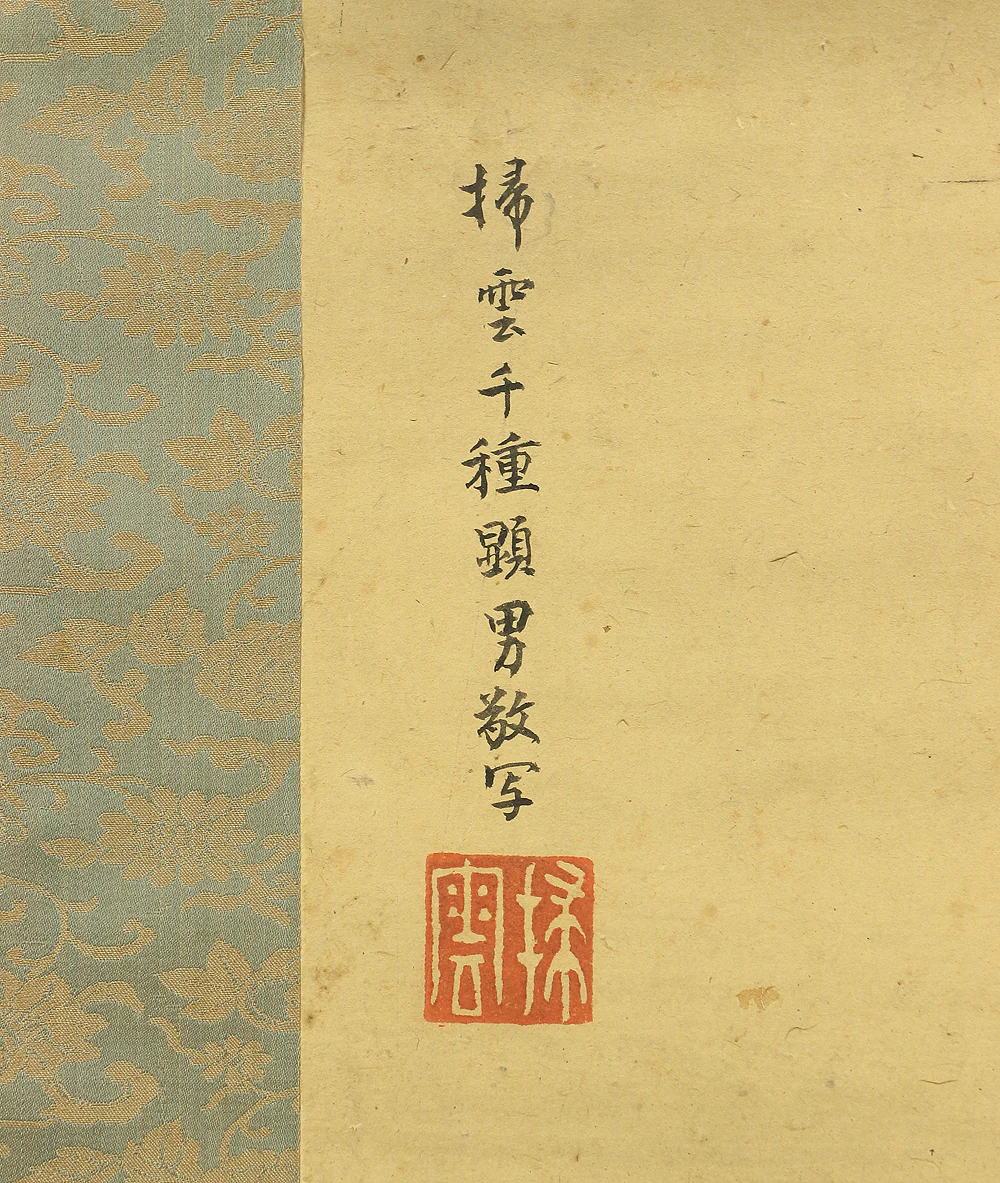 掃雲千種顕男敬写
掃雲